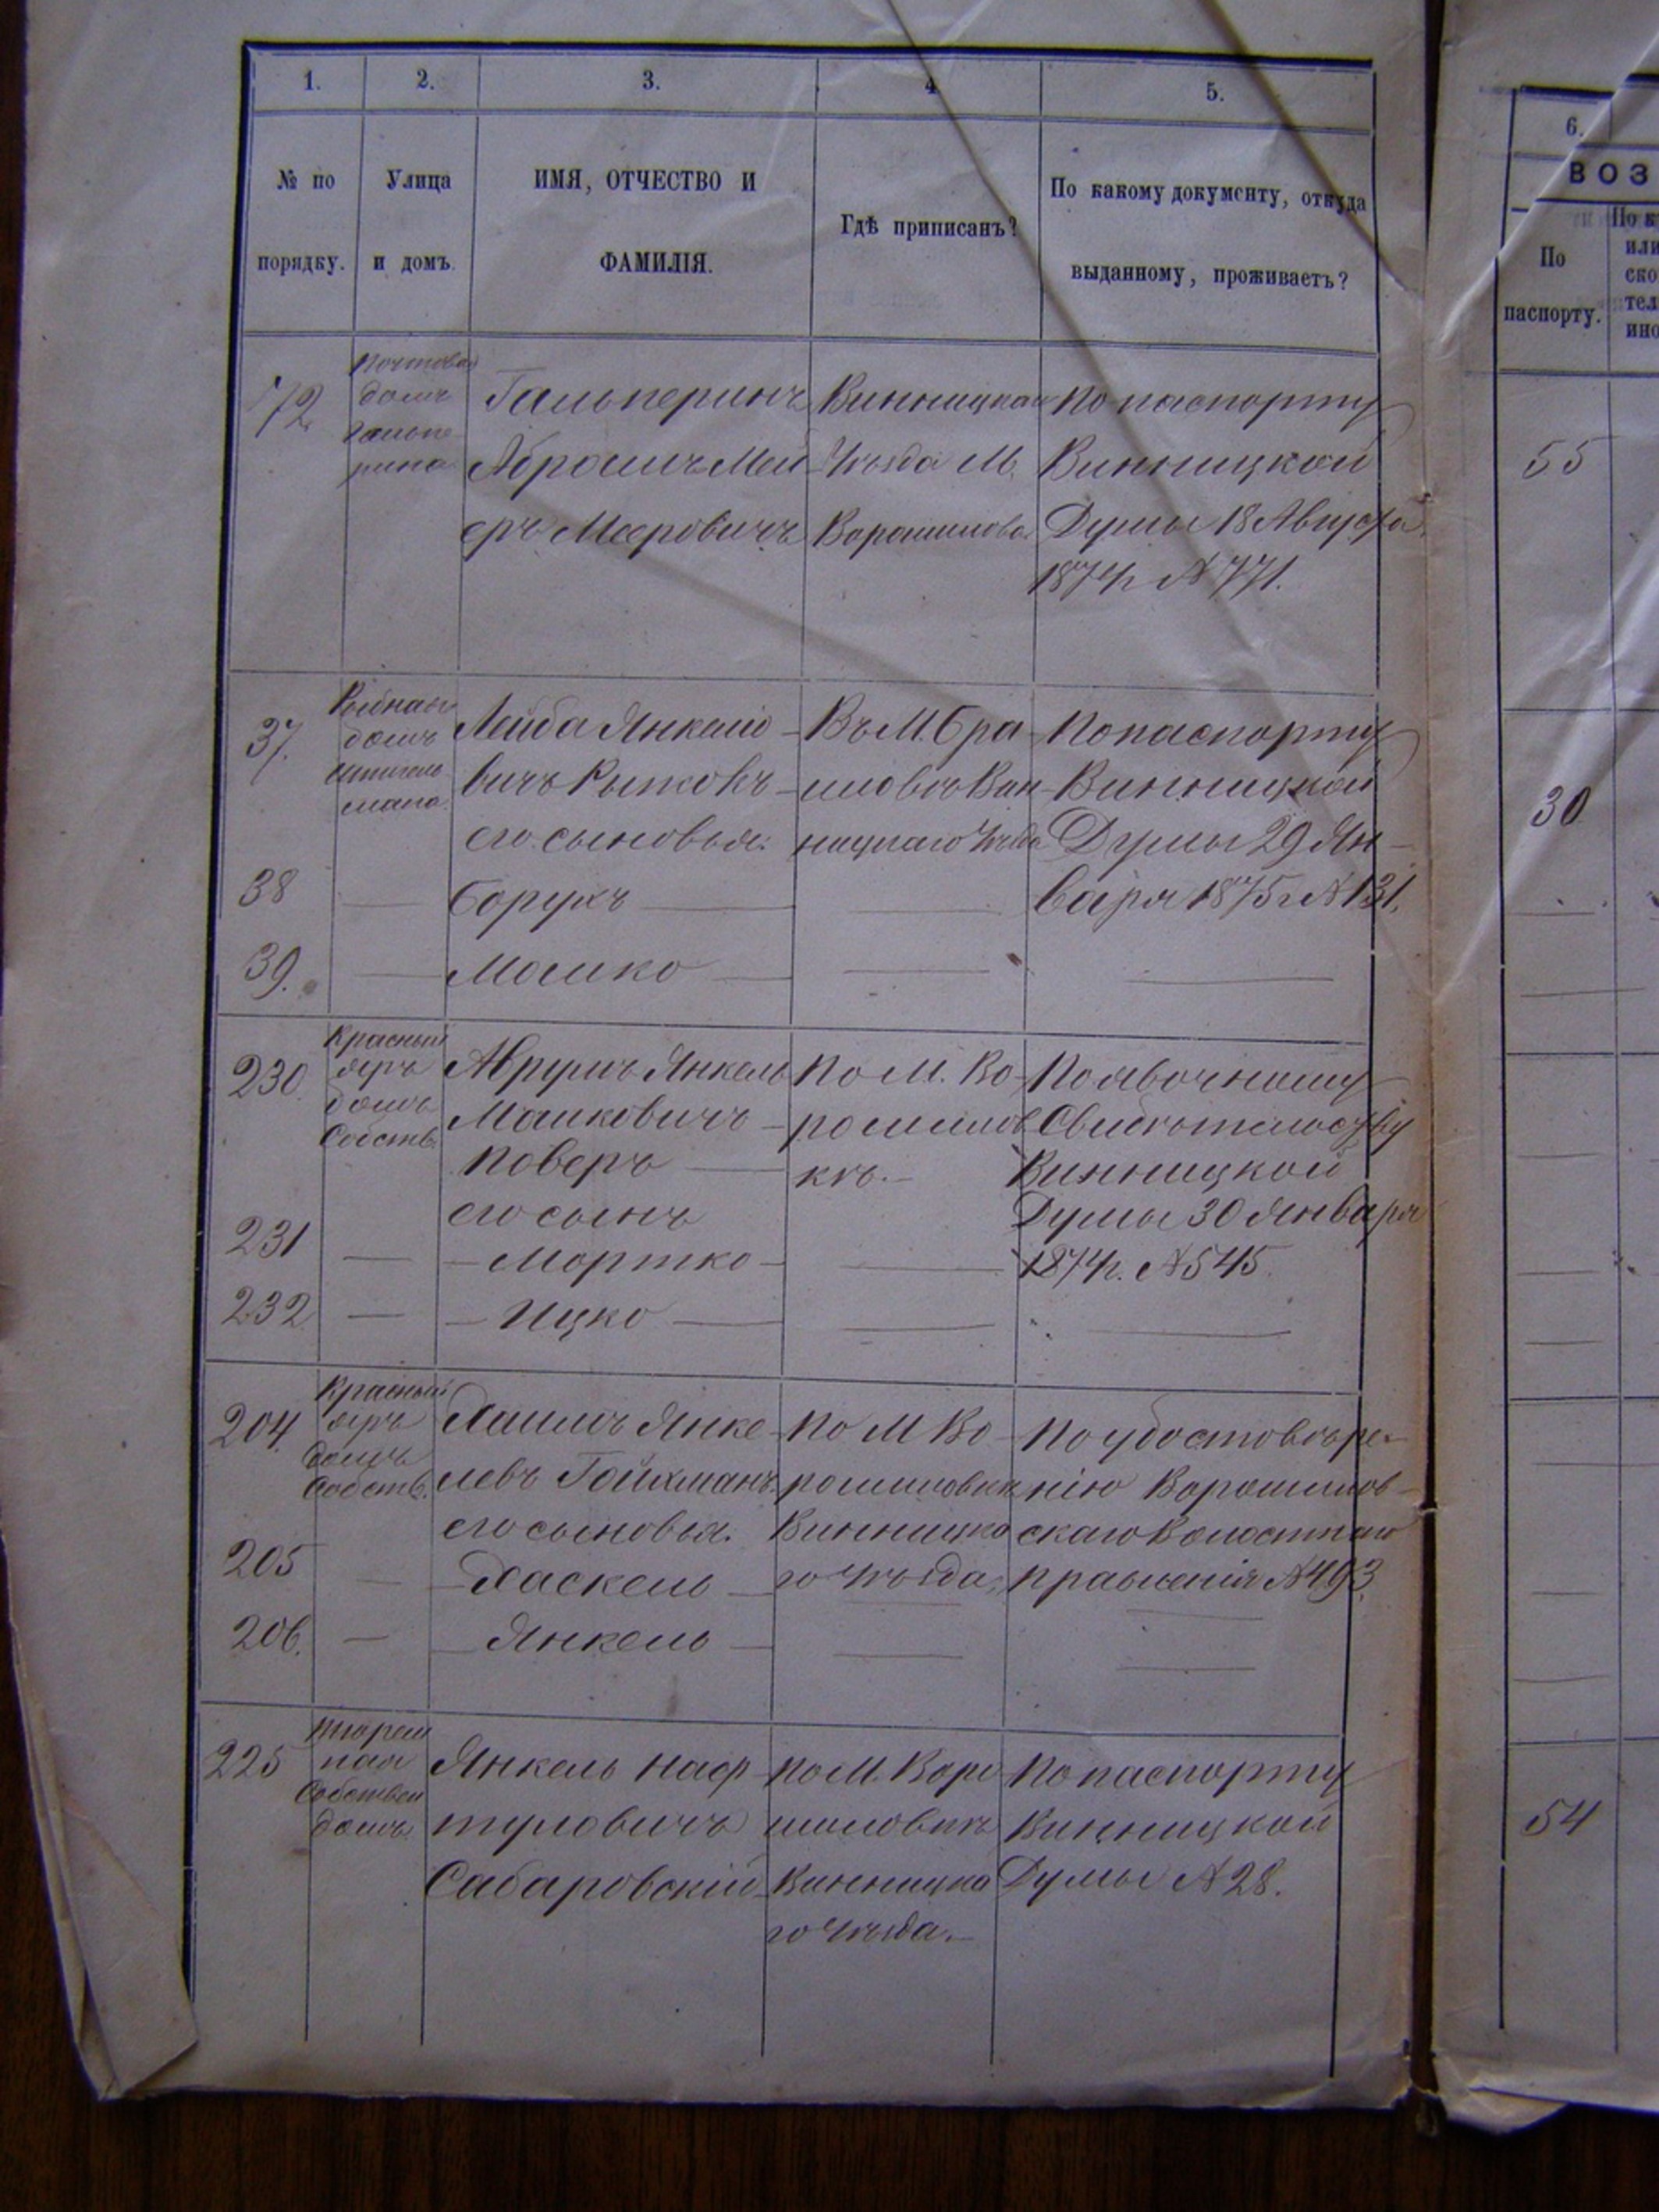 1. 2. 3. 4 5.
№ по порядку.
Улица и домъ.
ИМЯ, ОТЧЕСТВО И
ФАМИЛІЯ.
Гдѣ приписанъ?
По какому документу, откуда
выданному, проживаетъ?
6.
ВОЗ
По
паспорту.
72
Почтовая
домъ
Гальпе-
рина
Гальперинъ
Абрамъ Мей
еръ Мееровичъ
Винницкаго
Уѣзда М.
Ворошиловка
По паспорту
Винницкой
Думы 18 Августа
1874г №771.
55
37.
Рыбная
домъ
мана
Лейба Янкелю
вичъ Рыжовъ
его сыновья:
Въ М. Bра
иловѣ Вин
ницкаго Уѣзда
По паспорту
Винницкой
Думы 29 Ян-
варя 1875г №131.
30
38 — Борухъ —
39. — Мошко —
230
Красный
яръ
домъ
Собств.
Аврумъ Янкель
Мошковичъ
Поверъ
его сынъ
По М. Во-
рошилов
кѣ.
По явочному
Свидѣтельству
Винницкой
Думы 30 Января
1874г. №545.
231 — Мортко —
232 — Ицко —
204.
Красный
яръ
Домъ
Собств.
Хаимъ Янке
левъ Гойхманъ.
его сыновья.
По М Во-
рошиловкѣ
Винницка
го Уѣзда.
По удостовѣре-
нію Ворошилов-
скаго Волостнаго
правленія №493.
205 — Хаскель —
206. — Янкель —
225
Тюрем
ная
Собствен
домъ.
Янкель Наф
туловичъ
Сабаровскій
По М. Воро
шиловкѣ
Винницка
го Уѣзда.
По паспорту
Винницкой
Думы №28.
54